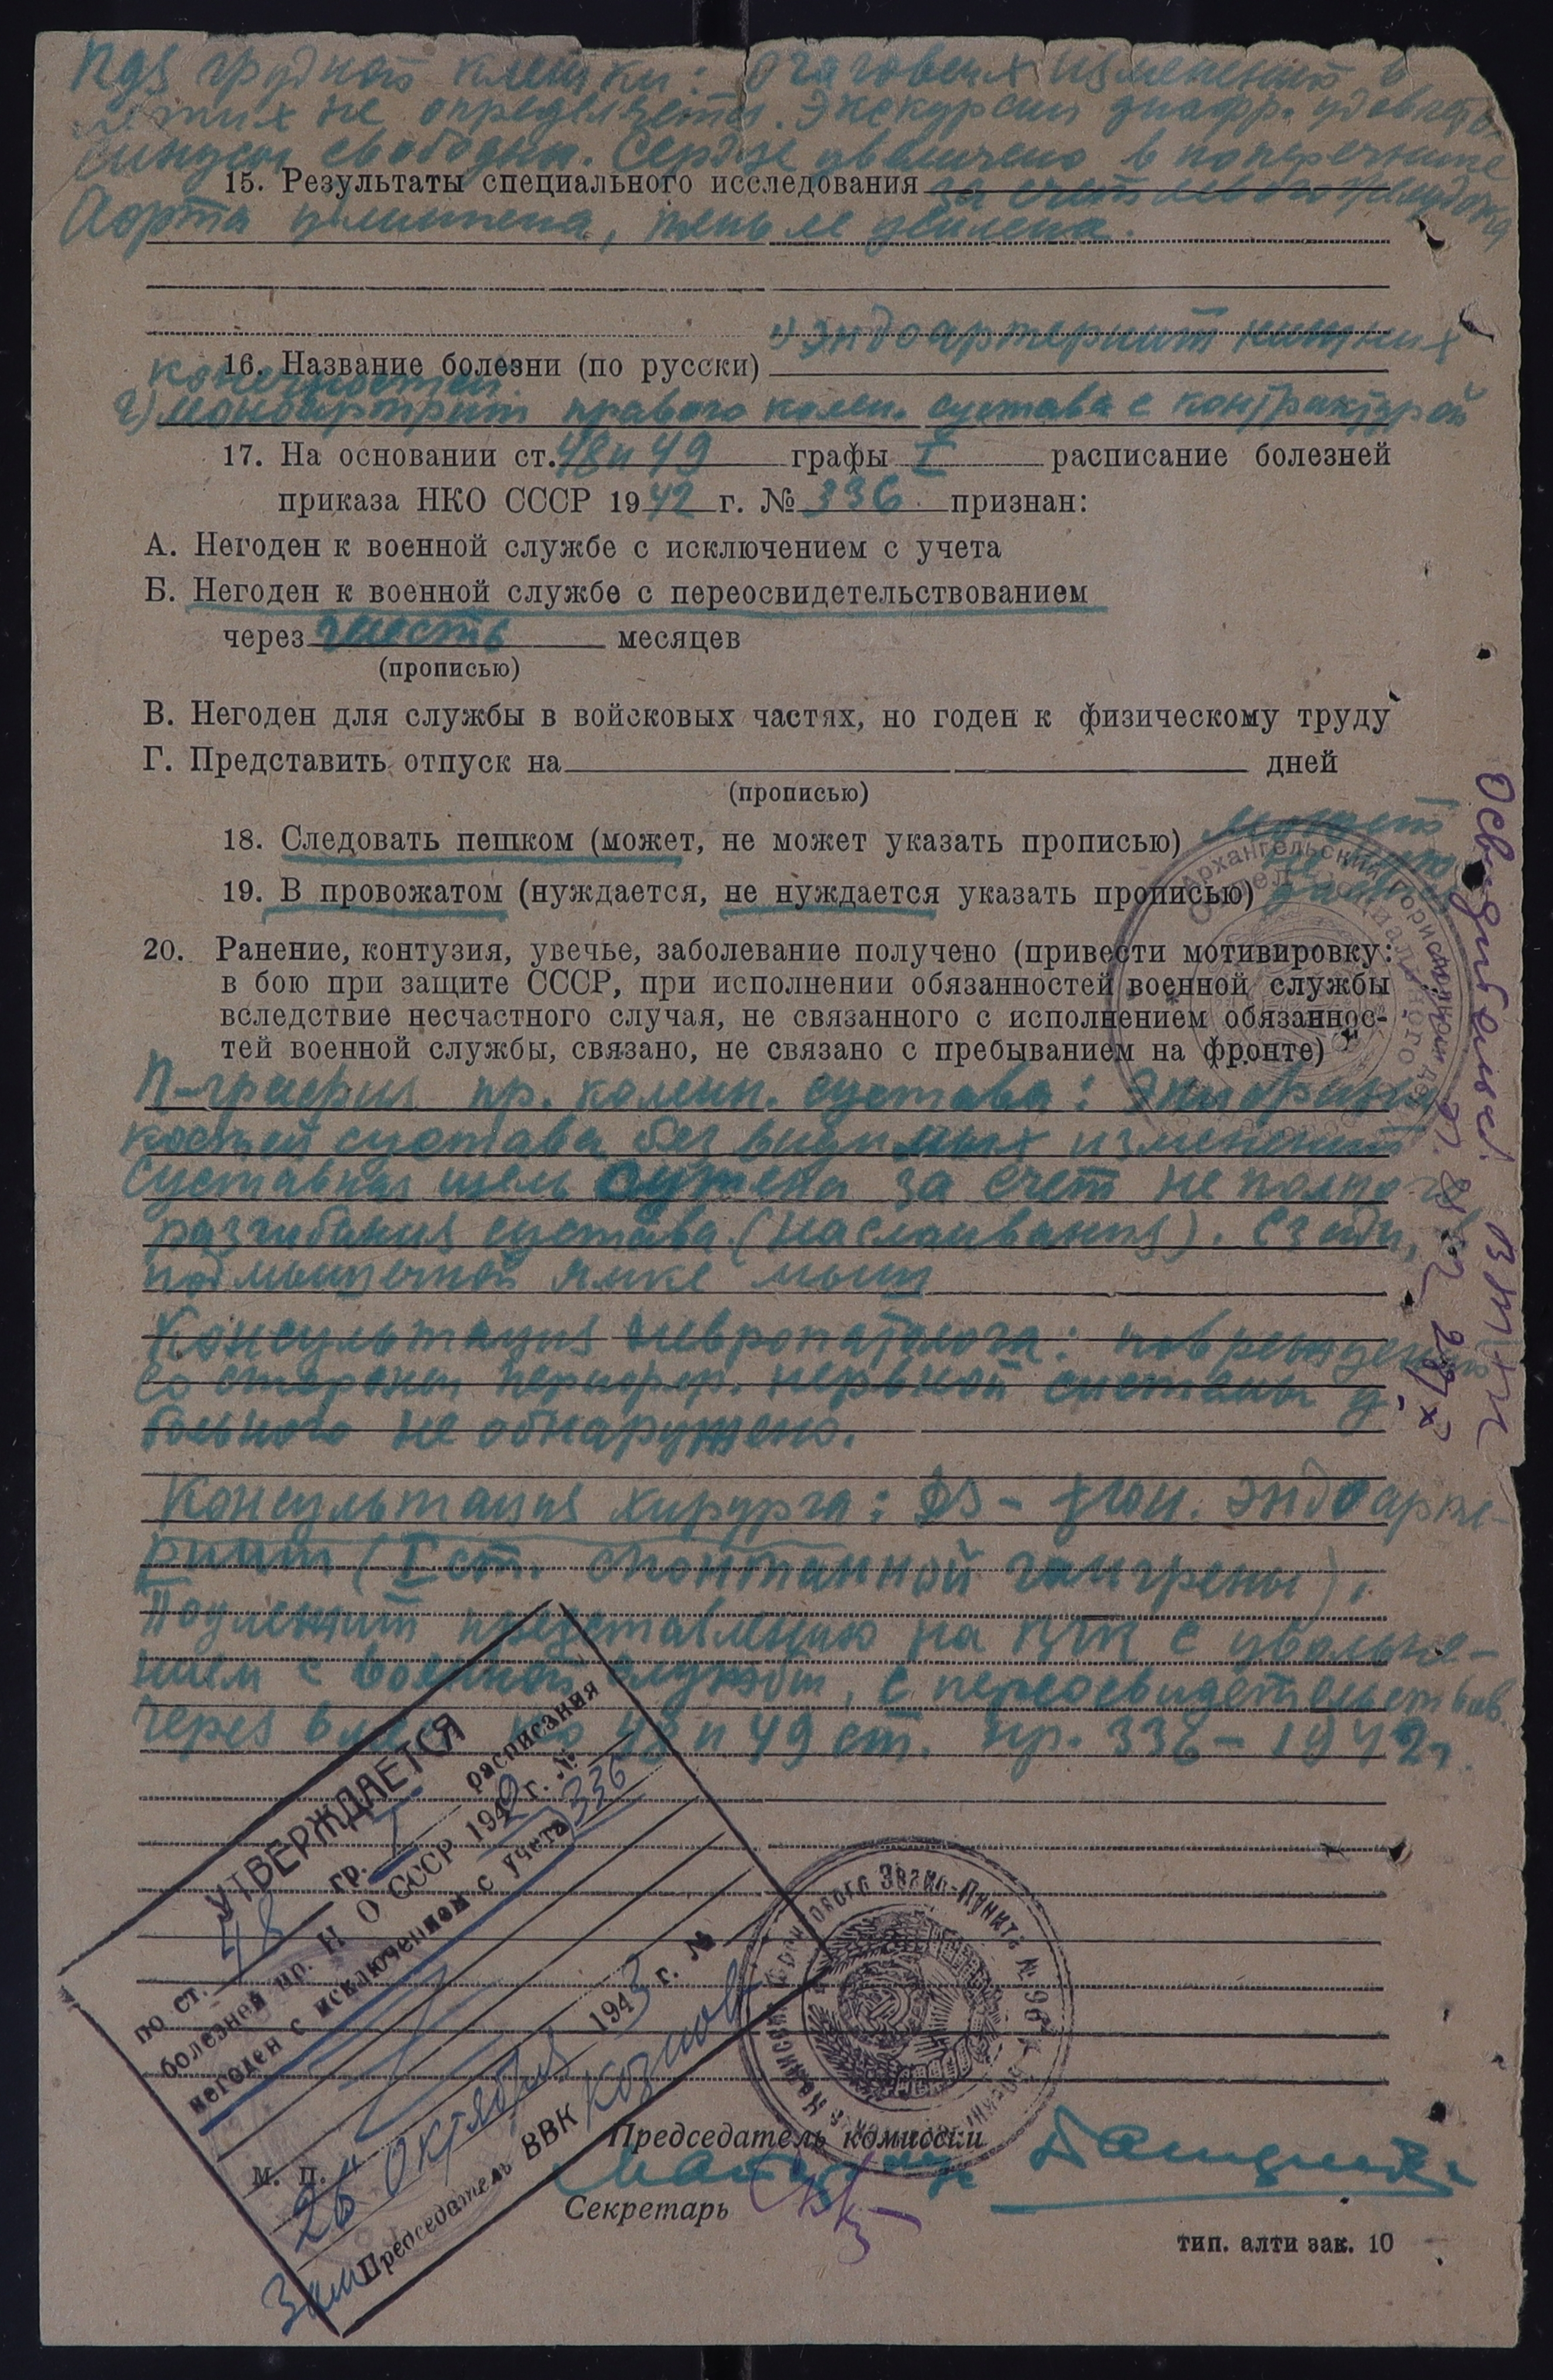 грудной клетки: очаговых изменений в
легких не определяется. Экскурсии диафр. удовлетв.
синусы свободны. Сердце увеличено в поперечнике
15. Результаты специального исследования за счет левого желудочка
Аорта удлинена, тень ее усилена.
16. Название болезни (по русски) 1) Эндоартериит нижних
конечностей
2) моноартрит правого колен. сустава с контрактурой
17. На основании ст. 48 и 49 графы I расписание болезней
приказа НКО СССР 1942 г. № 336 признан:
А. Негоден к военной службе с исключением с учета
Б. Негоден к военной службе с переосвидетельствованием
через шесть месяцев
(прописью)
В. Негоден для службы в войсковых частях, но годен к физическому труду
Г. Представить отпуск на дней
(прописью)
18. Следовать пешком (может, не может указать прописью) может
19. В провожатом (нуждается, не нуждается указать прописью)
20. Ранение, контузия, увечье, заболевание получено (привести мотивировку:
в бою при защите СССР, при исполнении обязанностей военной службы
вследствие несчастного случая, не связанного с исполнением обязаннос-
тей военной службы, связано, не связано с пребыванием на фронте)
пр. колен. сустава: Эпифизы
костей сустава без видимых изменений
Суставная щель сужена за счет неполного
разгибания сустава (наслаивания). Сзади,
Консультация невропатолога: повреждений
со стороны перифер. нервной системы у
больного не обнаружено.
Консультация хирурга: DS – эндоарте-
риит (I ст. спонтанной гангрены).
Подлежит представлению на с увольне-
нием с военной службы, с переосвидетельствов.
через 6 мес. по 48 и 49 ст. пр. 336 – 1942 г.
УТВЕРЖДАЕТСЯ
по ст. 48 гр. I расписания
болезней пр. Н О СССР 1942 г. № 336
негоден с исключением с учета
26 октября 1943 г. №
М. П.
Зам Председатель ВВК Козлов
Председатель комиссии
Секретарь
тип. алти зак. 10
Эвако-Пункта № 96
Архангельский